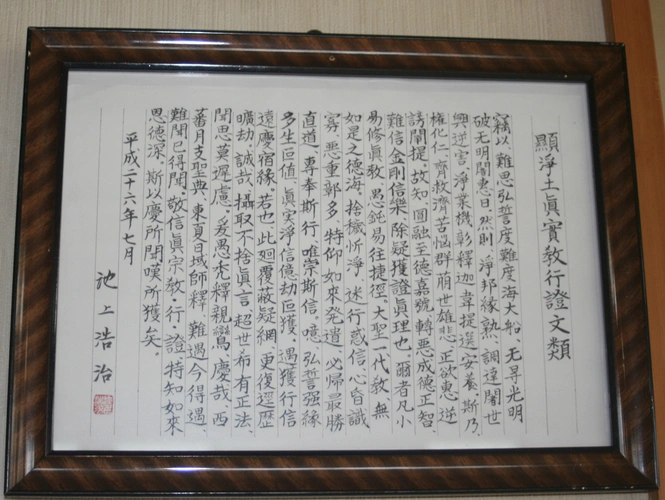 顯淨土眞實敎行證文類
竊以、難思弘誓度難度海大船、无㝵光明
破无明闇惠日。然則、淨邦緣熟、調達闍世
興逆害。淨業機彰、釋迦韋提選安養。斯乃、
權化仁、齊救濟苦惱群萠、世雄悲、正欲惠逆
謗闡提。故知、圓融至德嘉號、轉惡成德正智、
難信金剛信樂、除疑獲證眞理也。爾者、凡小
易修眞敎、愚鈍易往捷徑。大聖一代敎、無
如是之德海。捨穢忻淨、迷行惑信、心昏識
寡、惡重鄣多、特仰如來發遣、必歸最勝
直道、專奉斯行、唯崇斯信。噫、弘誓强緣
多生叵値、眞实淨信億劫叵獲。遇獲行信
遠慶宿緣。若也、此廻覆蔽疑網、更復逕歷
曠劫。誠哉、攝取不捨眞言、超世希有正法、
聞思莫遲慮。爰愚禿釋親鸞、慶哉、西
蕃月支聖典、東夏日域師釋、難遇今得遇、
難聞已得聞。敬信眞宗敎・行・證、特知如來
恩德深。斯以、慶所聞、嘆所獲矣。
平成二十六年七月
池上浩治